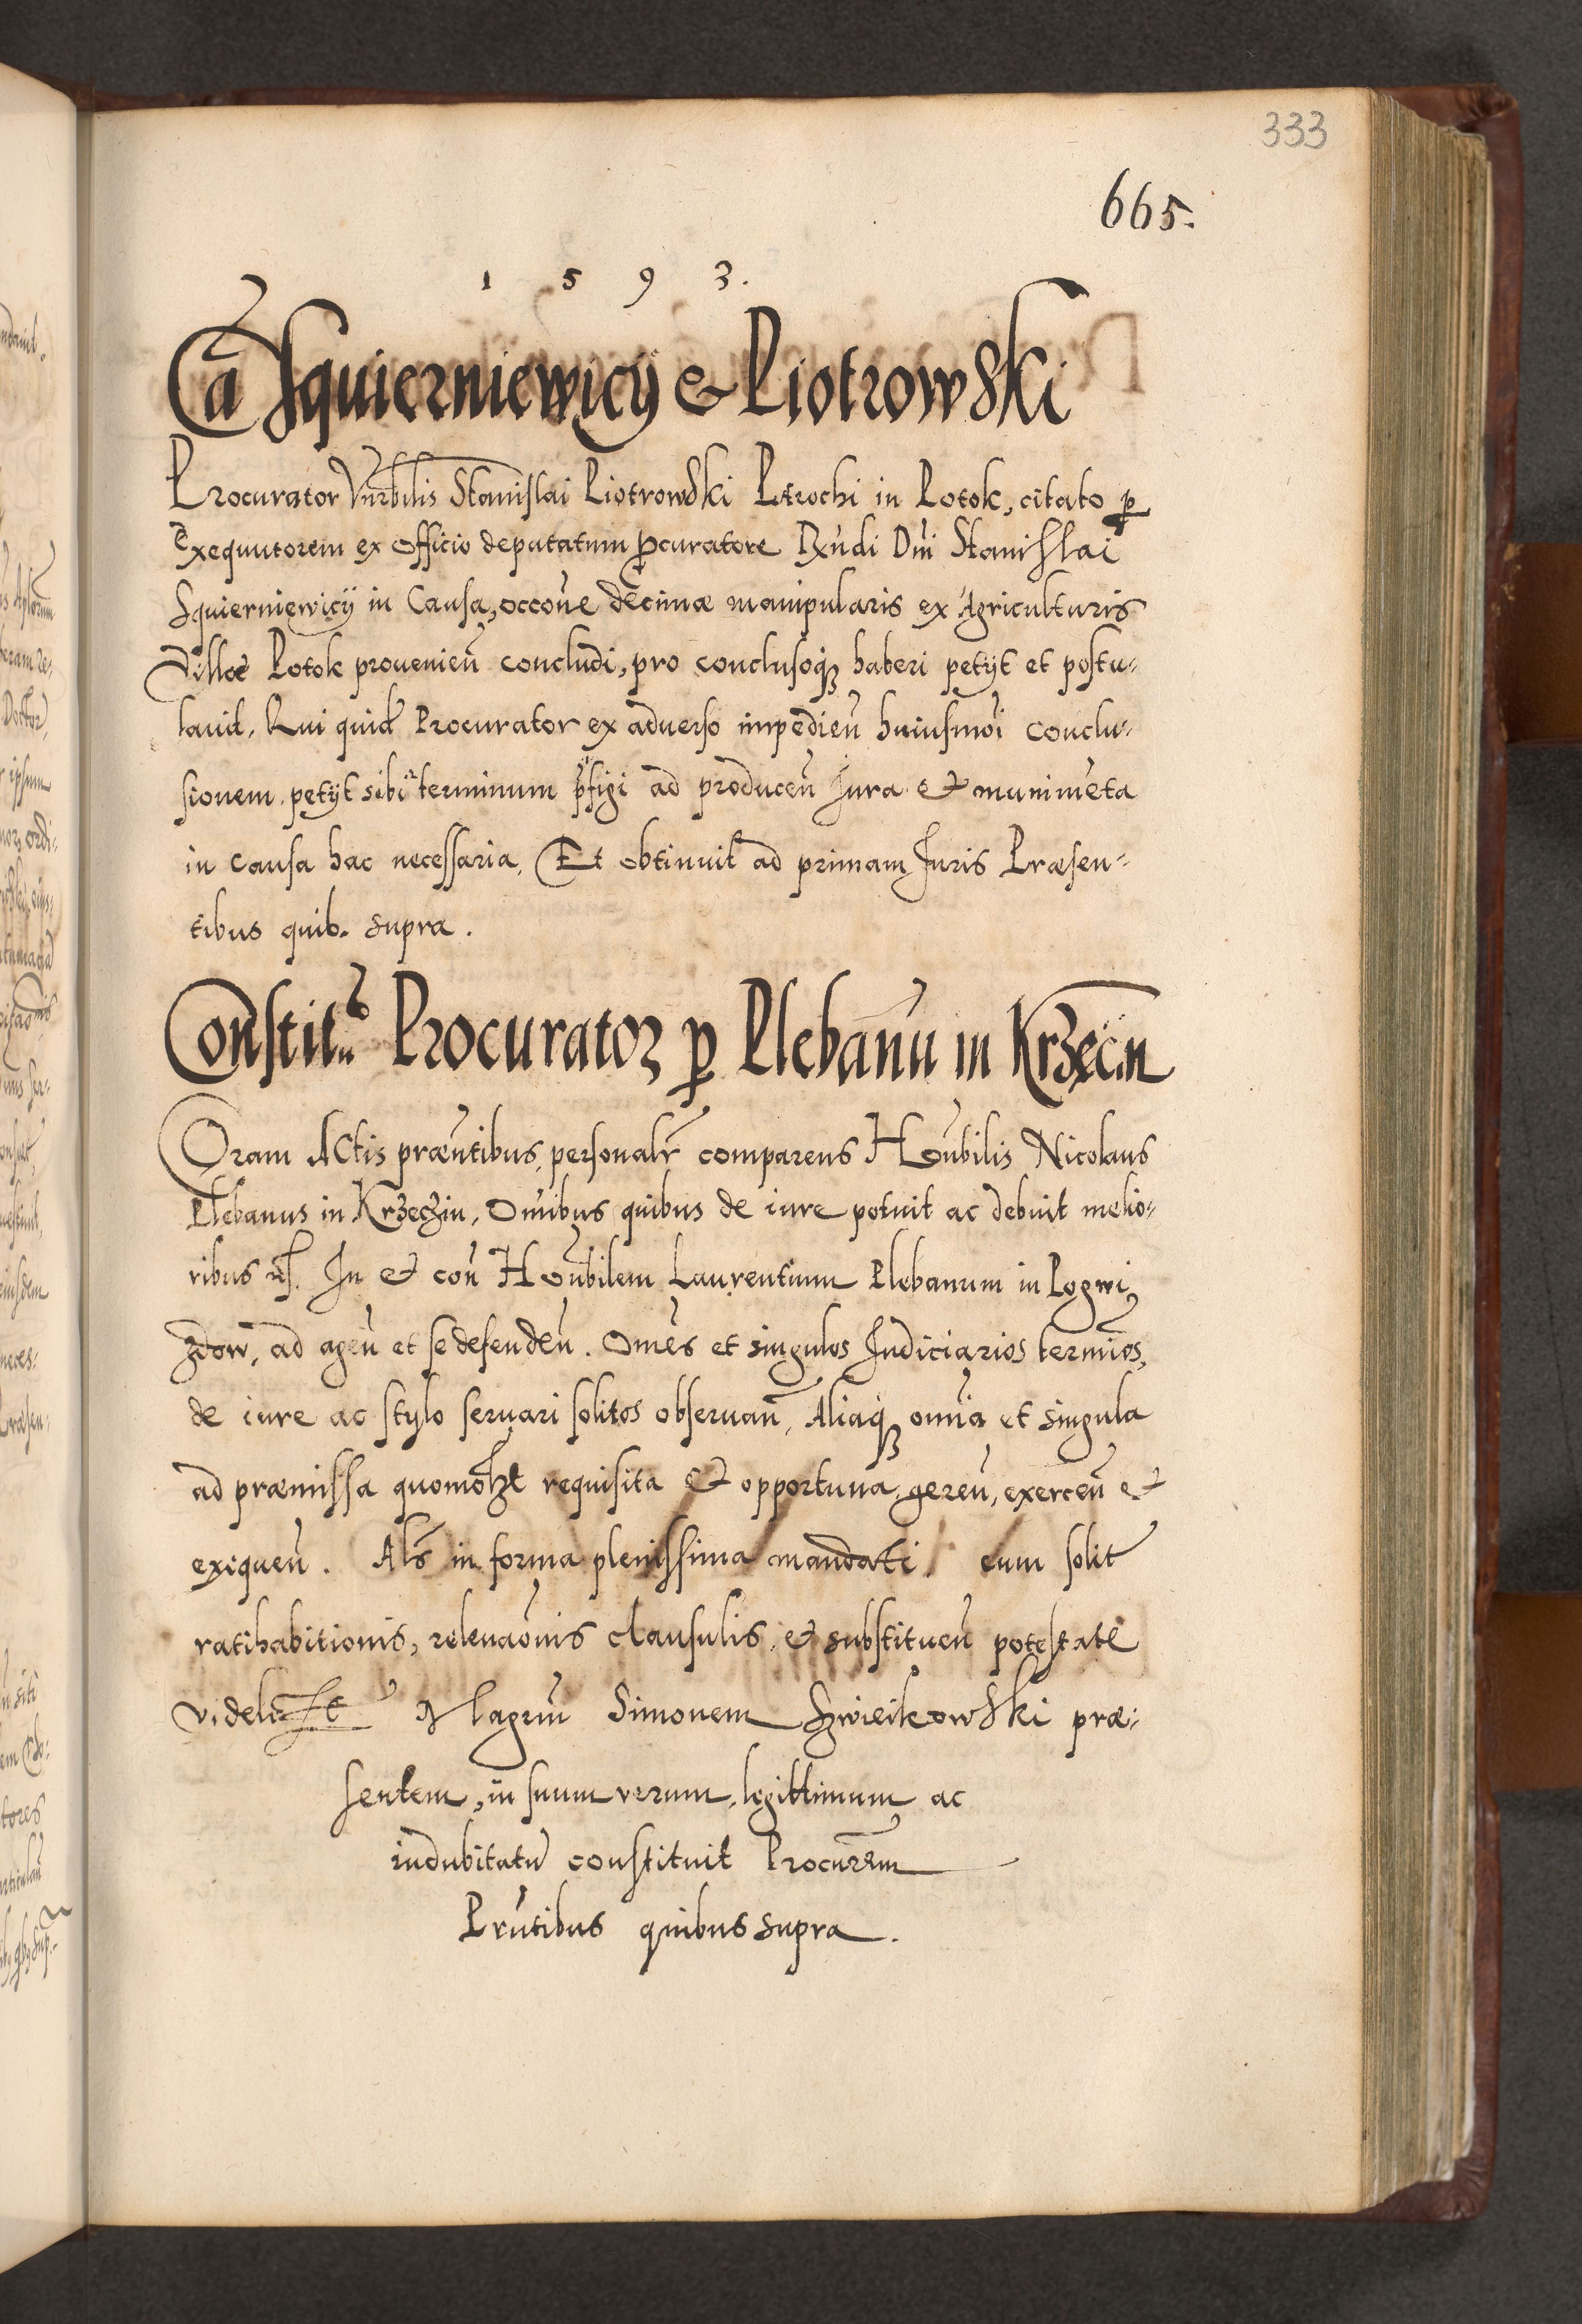 333
665.
1 5 9 3.
Cā Squierniewicÿ & Piotrowski
Procurator Vnrbilis Stanislai Piotrowski Ptrochi in Potok, citato ꝑ
Exequutorem ex officio deputatum ꝓcuratore Rxūdi Dni Stanislai
Squierniewicÿ in Causa, occone decimæ manipularis ex Agriculturis
Villæ Potok prouenien̄ concludi, pro conclusoq́ꝫ haberi petÿt et postu-
lauit. Qui quid Procurator ex aduerso impedien̄ huiusmoi conclu-
sionem petÿt sibi terminum p̄figi ad producen̄ Jura et munimēta
in causa hac necessaria. Et obtinuit ad primam Juris Præsen-
tibus quib. supra.
Constit. Procurator ꝑ Plebanū in Krzeċin
Coram Actis præn̄tibus, personalr̄ comparens Hon̄bilis Nicolaus
Plebanus in Krzeczin, Om̄ibus quibus de iure potuit ac debuit melio-
ribus In et con̄ Hon̄bilem Laurentium Plebanum in Pogwi,
zdow, ad agen̄ et se defenden̄. Omēs et singulos Judiciarios termios,
de iure ac stylo seruari solitos obseruan̄, Aliaq́ꝫ omīa et singula
ad præmissa quomolt requisita et opportuna, geren̄, exercen̄ et
exiquen̄. Als in forma plenissima mandati cum solit
ratihabitionis, releuaōnis clausulis, et substituen̄ potestate
videlicet Magrum Simonem Szwieikowski præ-
sentem, in suum verum, legittimum ac
indubitatū constituit Procurem̄
Prn̄tibus quibus supra.